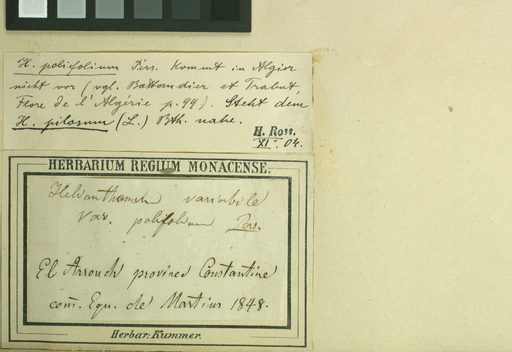 H. polifolium Pers. Kommt in Algier
nicht vor (vgl. Battandier et Trabut,
Flore de l'Algérie p. 99). Steht dem
H. pilosum (L.) Bth. nahe.
H. Ross.
XI. 04.
HERBARIUM REGIUM MONACENSE.
Helianthemum variabile
Var. polifolium Pers.
El Arrouch province Constantine
com. Equ. de Martius 1848.
Herbar: Kummer.